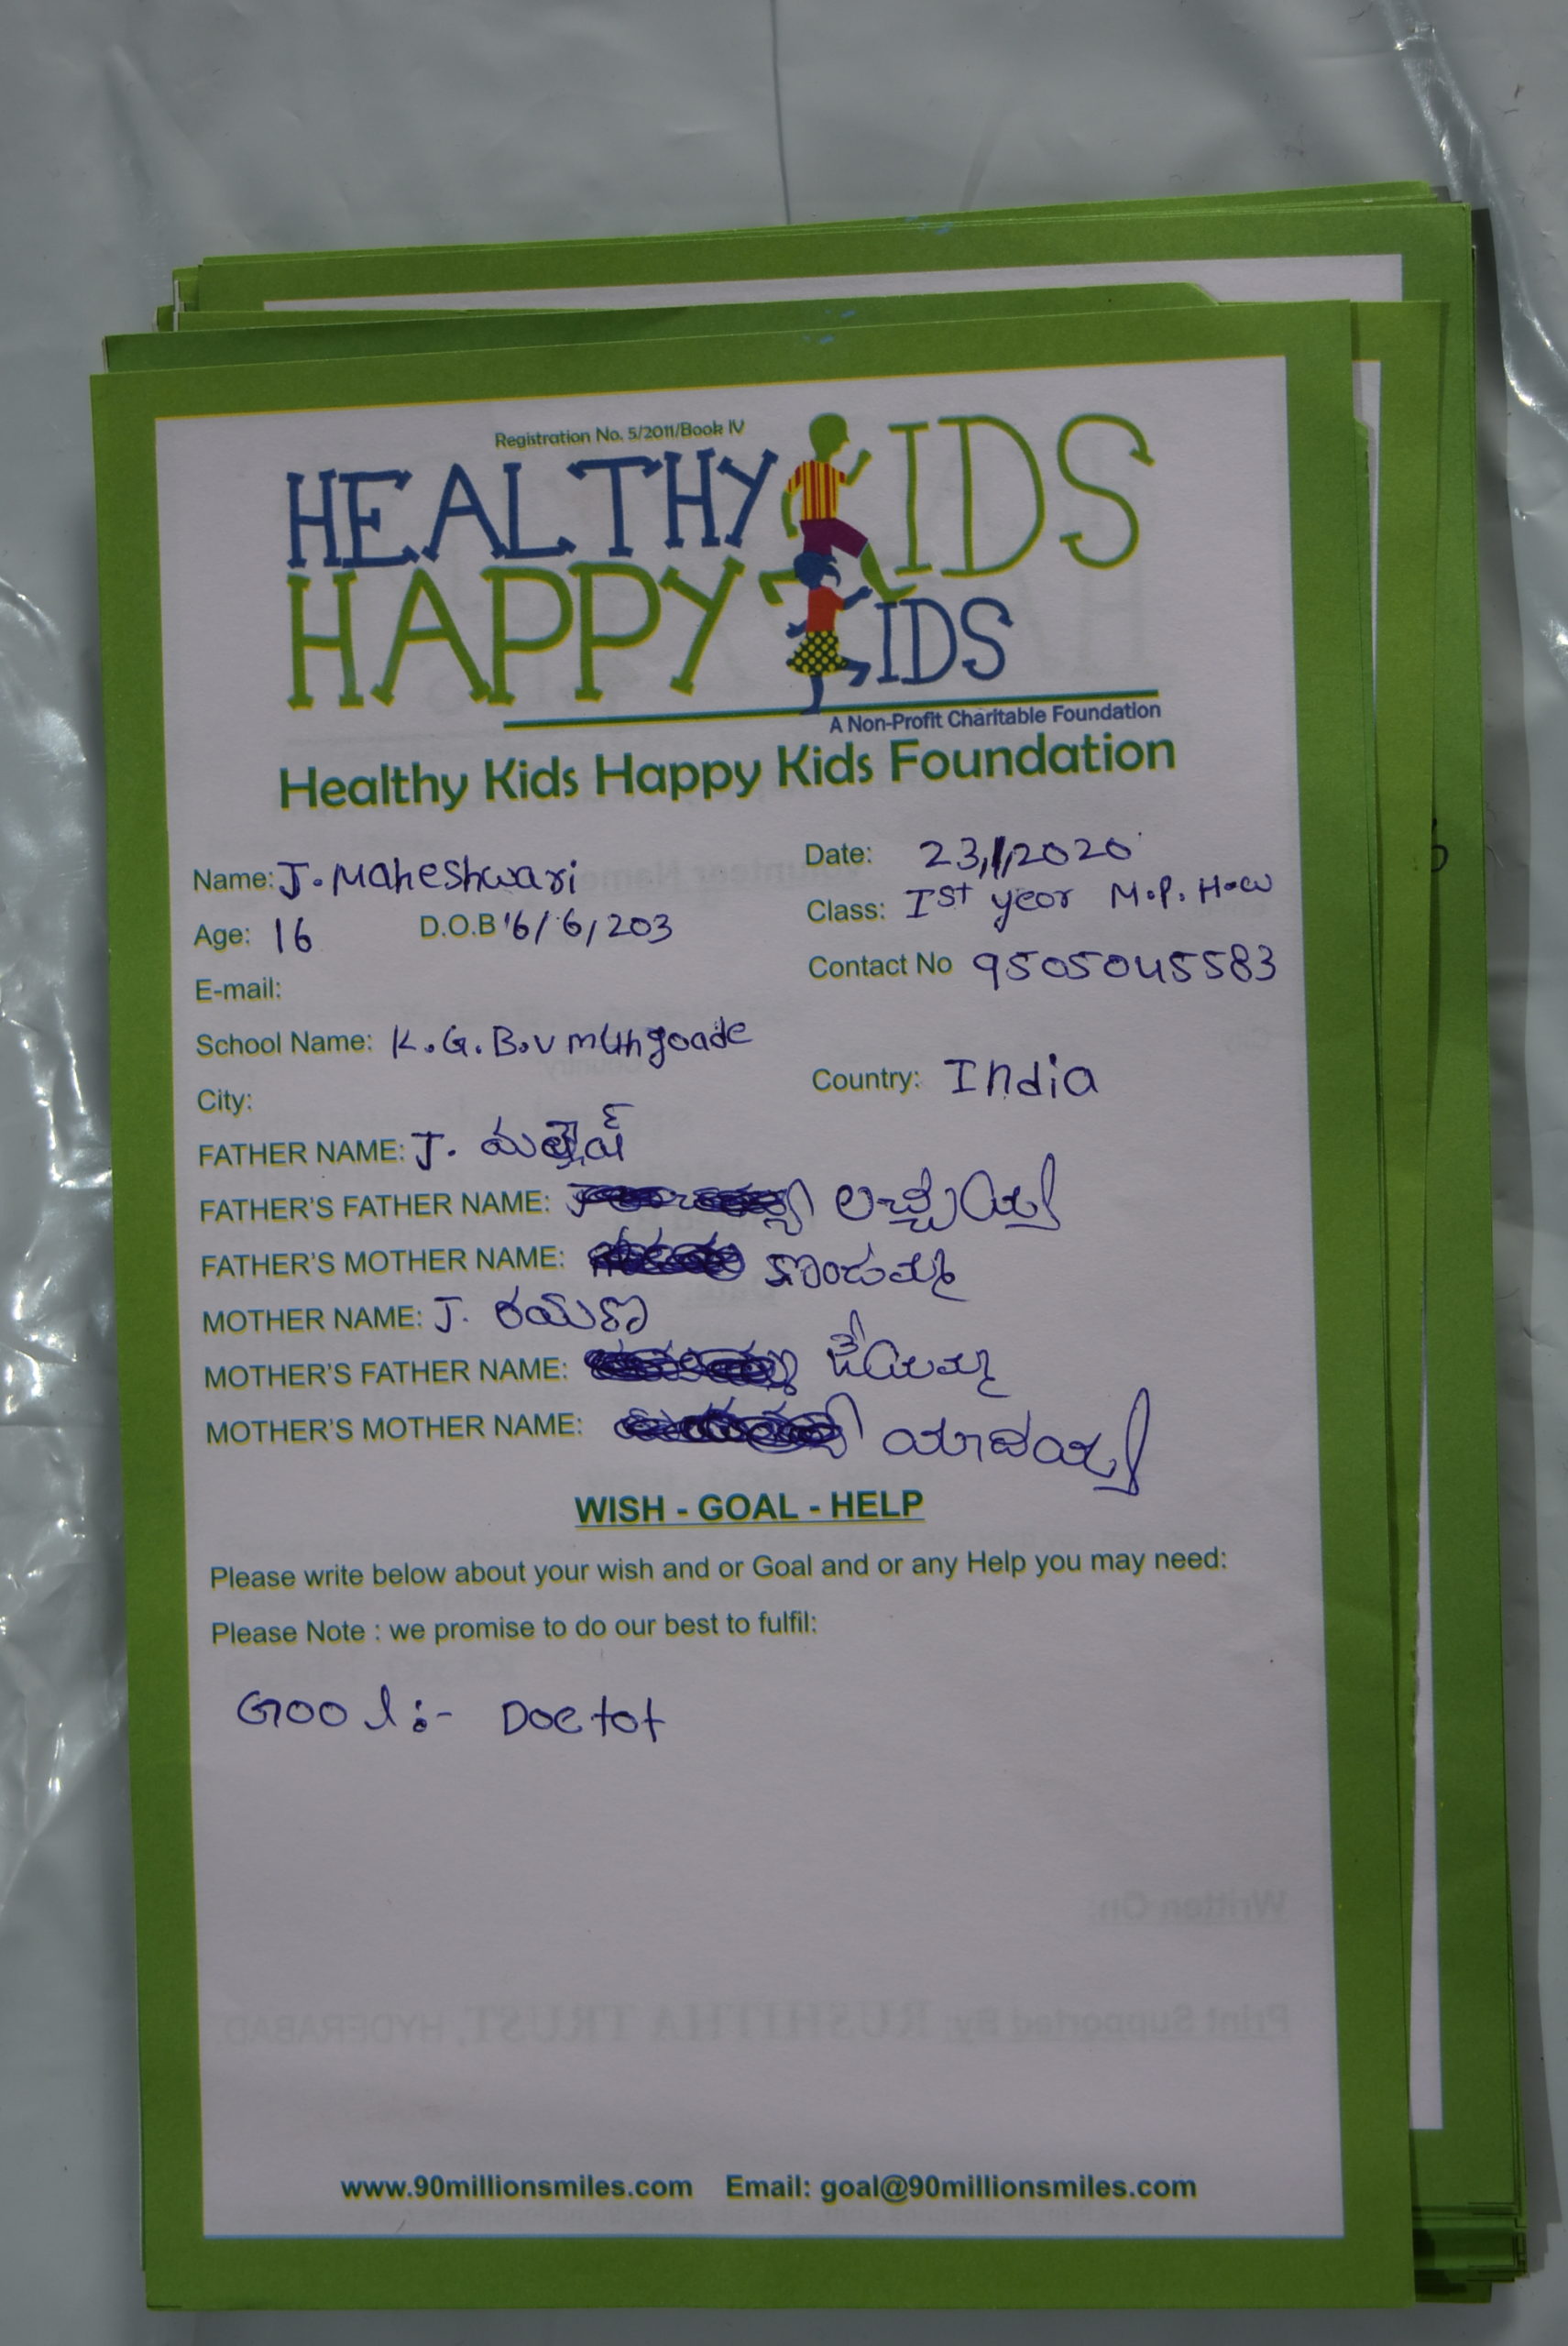 Registration No. 5/2011/Book IV
HEALTHY KIDS
HAPPY KIDS
A Non-Profit Charitable Foundation
Healthy Kids Happy Kids Foundation
Name: J. Maheshwari
Date: 23/1/2020
Age: 16 D.O.B 16/6/203
Class: Ist year M.P.H.W
E-mail:
Contact No 9505045583
School Name: K.G.B.V mungoade
City:
Country: India
FATHER NAME: J.
FATHER'S FATHER NAME: లచ్చయ్య
FATHER'S MOTHER NAME: కొండమ్మ
MOTHER NAME: J.
MOTHER'S FATHER NAME:
MOTHER'S MOTHER NAME:
WISH - GOAL - HELP
Please write below about your wish and or Goal and or any Help you may need:
Please Note : we promise to do our best to fulfil:
Gool :- Doctor
www.90millionsmiles.com Email: goal@90millionsmiles.com